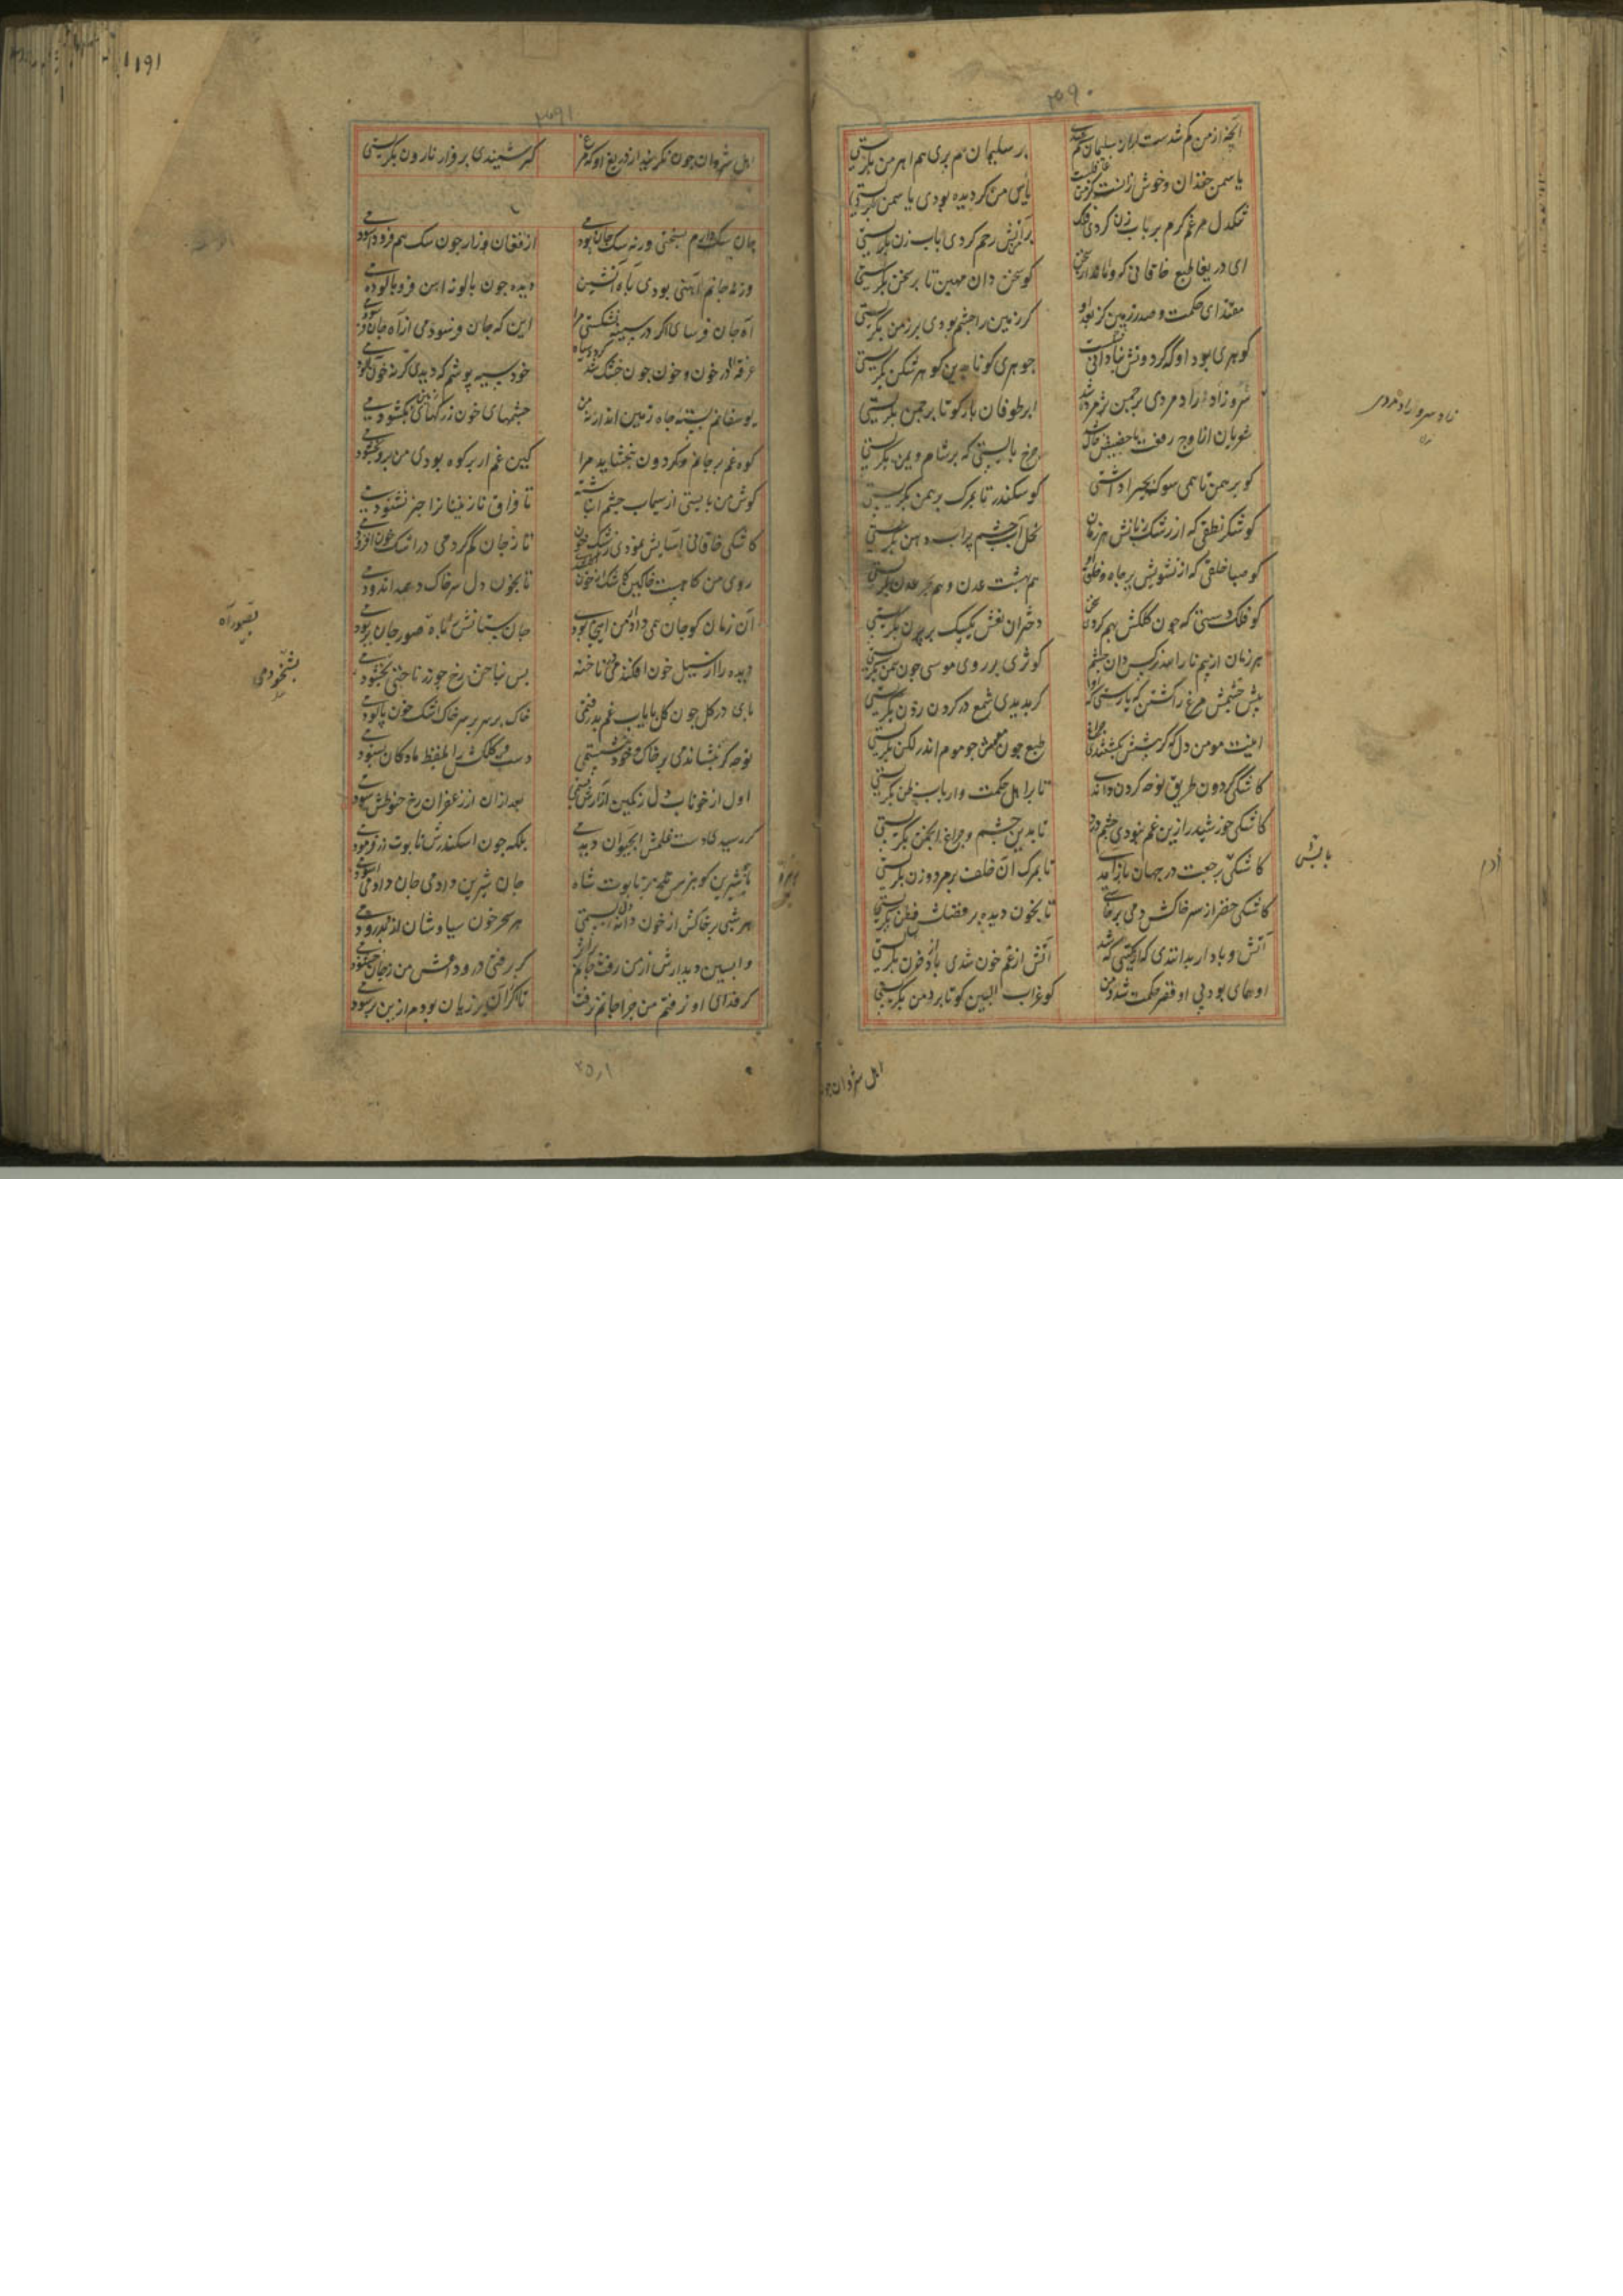 ۳۹۰
آنچه از من گم شدست ار از سلیمان گم شدی
بر سلیمان هم پری هم اهرمن بگریستی
یاسمن خندان و خوش زانست کز من غافلست
یاس من گر دیده بودی یاسمن بگریستی
تنگدل مرغم گرم بر بابزن کردی فلک
بر من آتش رحم کردی بابزن بگریستی
ای دریغا طبع خاقانی که وماند از سخن
کو سخن دان مهین تا بر سخن بگریستی
مقتدای حکمت و صدر زمین کز بعد او
گر زمین را چشم بودی بر زمن بگریستی
گوهری بود او که گردونش بنادانی شکست
جوهری کو تا بدین گوهر شکن بگریستی
زاد سرو راد مردی بر چمن پژمرده شد
ابر طوفان بار کو تا بر چمن بگریستی
شعریان از اوج رفعت در حضیض خاک شد
چرخ بایستی که بر شام و یمن بگریستی
کو برهمن تا همی سوک بحیرا داشتی
کو سکندر تا بمرک برهمن بگریستی
کو شکر نطقی که از رشک زبانش هر زمان
نخل آب چشم پر آب دهن بگریستی
کو صبا خلقی که از تشویش بر جاه و خلق او
هم بهشت عدن و هم بحر عدن بگریستی
کو فلک دستی که چون کلکش بهم کردی سخن
دختران نعش یکیک بر پرن بگریستی
هر زمان از بیم نار اهدنا پاک دان چشم
کوثری بر روی موسی چون سمن بگریستی
پیش چشمش مرغ را کشتن که یارستی که او
گر بدیدی شمع در گردن زدن بگریستی
اینت مومن دل که گر پیشش بکشتندی چراغ
طبع چون مومش چو موم اندر لگن بگریستی
کاشکی گردون طریق نوحه کردن داندی
تا بر اهل حکمت و ارباب ظن بگریستی
کاشکی خورشید را زین غم نبودی چشم درد
تا بدین چشم و چراغ انجمن بگریستی
کاشکی آدم برجعت در جهان باز آمدی
تا بمرک آن خلف بر مرد و زن بگریستی
کاشکی خضر از سر خاکش دمی برخاستی
تا بخون دیده بر فضل و فطن بگریستی
آتش و باد ار بدانندی که از گیتی که شد
آتش از غم خون شدی باد از حزن بگریستی
او همای بود بی او قصر حکمت شد دمن
کو غراب البین کو تا بر دمن بگریستی
زاد سرو راد مردی
باتش
آدم
اهل شروان چون
۳۹۱
۱۹۱
اهل شروان چون نگریند از دریغ او که مرغ
گر شنیدی بر فراز نارون بگریستی
جان سگ دارم بسختی ورنه سگ جان بودمی
از فغان زار چون سگ هم فرو آسودمی
ورنه جانم آهنی بودی بآه آتشین
دیده چون پالونه آهن فرو پالودمی
آه جان فرسای اگر در سینه نشکستی مرا
این که جان فرسودمی از آه جان فرسودمی
غرقه‌ام در خون و خون چون خشک شد گردد سیاه
خود سیه پوشم که دیدی گر نه خون آلودمی
یوسفانم بسته چاه زمین اند ار نه من
چشمهای خون ز رگهای زمین بگشودمی
کوه غم بر جانم و گردون نبخشاید مرا
کین غم ار بر کوه بودی من برو بخشودمی
گوش من بایستی از سیماب چشم انباشته
تا فراق نازنینان را خبر نشنودمی
کاشکی خاقانی آسایش نمودی ز اشک خون
تا ز جان کم کردمی در اشک خون افزودمی
روی من کاهست و خاکین کاش از خون گل شدی
تا بخون دل سر خاک وحید اندودمی
آن زمان کو جان همی داد ار من اینجا بودمی
جان ستانش را بآه صور جان بربودمی
دیده را از سیل خون افکندمی در ناخنه
بس بناخن رخ چو زر ناخنی بشخودمی
پای در گل چون گل پایاب غم بدرفتمی
خاک بر سر بر سر خاک اشک خون پالودمی
نوحه گر بنشاندمی بر خاک و خود بنشستمی
دست و کلکش را بلفظ مادگان بستودمی
اول از خوناب دل رنگین ازارش بستمی
بعد از آن از زعفران رخ حنوطش سودمی
گر رسیدی دست غسلش زآب حیوان دیدمی
بلکه چون اسکندرش تابوت زر فرمودمی
همچو شیرین کو بزهر تلخ بر تابوت شاه
جان شیرین دادمی جان دادمی آسودمی
هر شبی بر خاکش از خون دانه دل کشتمی
هر سحر خون سیاوشان ازو بدرودمی
واپسین دیدارش از من رفت جانم بر اثر
گر برفتی در وداعش من ز جان خشنودمی
گر فدای او نرفتم من چرا جانم نرفت
تا گر آن بر زیان بودم ازین بر سودمی
بصور آه
بشخودمی